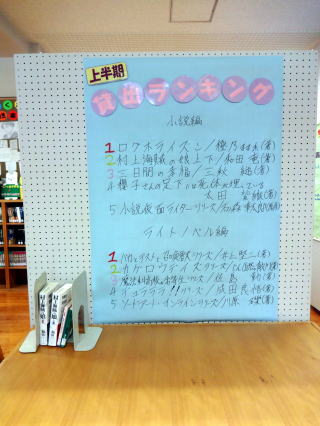 上半期
貸出ランキング
小説編
1 ロクホライズン/橙乃ままれ(著)
2 村上海賊の娘 上下/和田 竜(著)
3 三日間の幸福/三秋 縋(著)
4 櫻子さんの足下には死体が埋っている
太田 紫織(著)
5 小説仮面ライダーシリーズ/石ノ森 章太郎
ライトノベル編
1 バカとテストと召喚獣シリーズ/井上 堅二(著)
2 カゲロウデイズシリーズ/じん(自然の敵P)(著)
3 魔法科高校の劣等生シリーズ/佐島 勤(著)
4 デュラララ!!シリーズ/成田 良悟(著)
5 ソードアート・オンラインシリーズ/川原 礫(著)